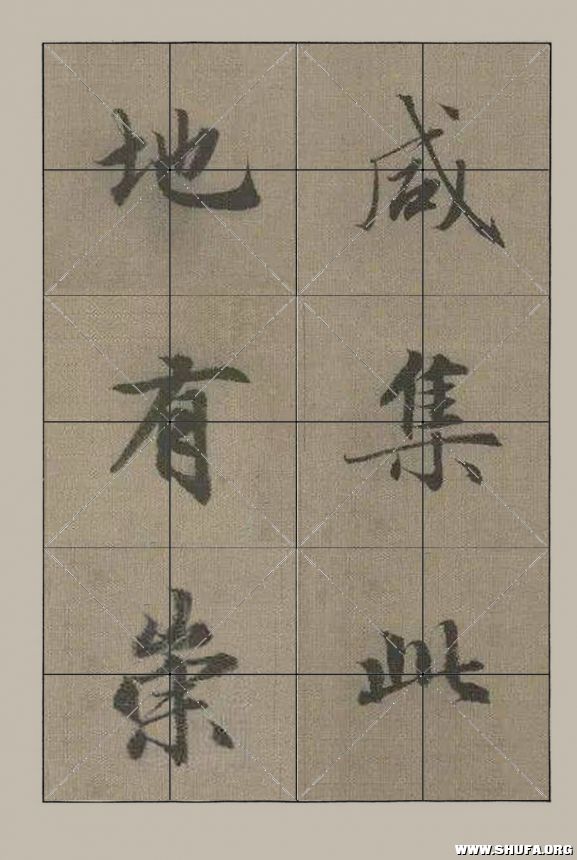 咸集此
地有崇
WWW.SHUFA.ORG